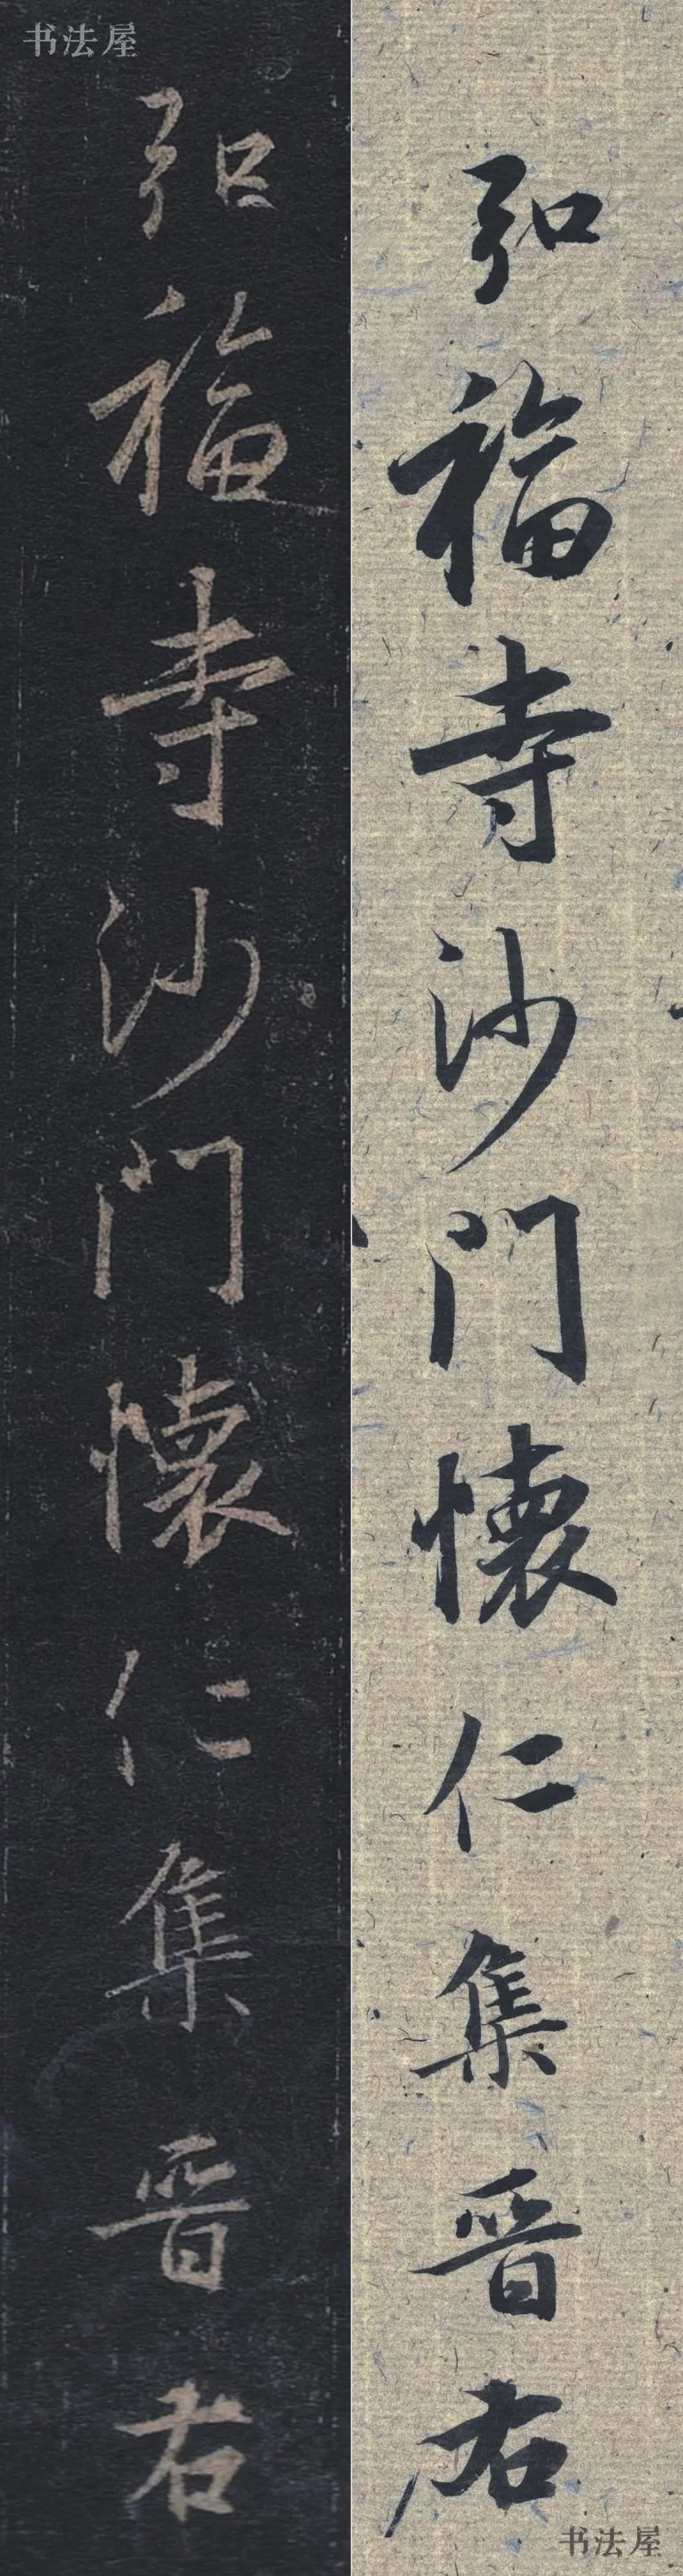 书法屋
弘福寺沙門懷仁集晉右
弘福寺沙門懷仁集晉右
书法屋